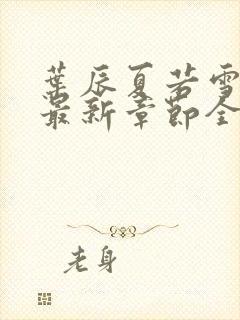 葉辰夏若雪
最新章節全
老身